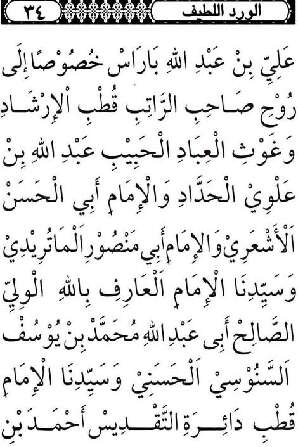 ٣٤ الورد اللطيف
عَلِيّ بِنْ عَبْدِ اللهِ بَارَاسْ خُصُوْصًا إِلَى
رُوْحِ صَاحِبِ الرَّاتِبِ قُطْبِ الْاِرْشَادِ
وَغَوْثِ الْعِبَادِ الْحَبِيْبِ عَبْدِ اللهِ بِنْ
عَلَوِيْ الْحَدَّادِ وَالْاِمَامِ أَبِي الْحَسَنْ
الْأَشْعَرِيْ وَالْاِمَامِ أَبِي مَنْصُوْر الْمَاتُرِيْدِيْ
وَسَيِّدِنَا الْاِمَامِ الْعَارِفِ بِاللهِ الْوَلِيِّ
الصَّالِحْ أَبِى عَبْدِ اللهِ مُحَمَّدْ بِنْ يُوْسُفْ
اَلسَّنُوْسِيْ اَلْحَسَنِيْ وَسَيِّدِنَا الْاِمَامِ
قُطْبِ دَائِرَةِ التَّقْدِيْسِ أَحْمَدَ بْنِ